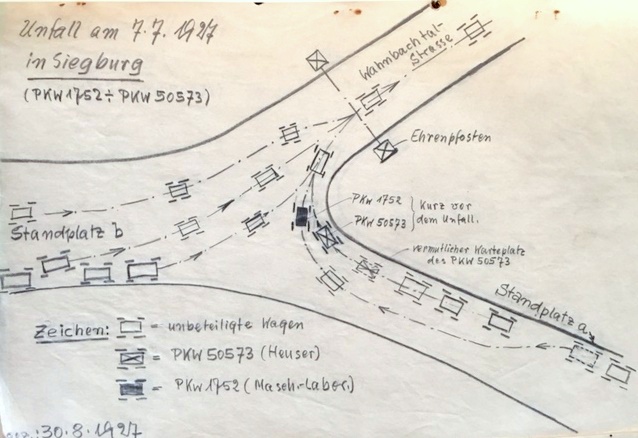 Unfall am 7.7. 1927
in Siegburg
(PKW 1752 ÷ PKW 50573)
Wahnbachtal-
Strasse
Ehrenpfosten
PKW 1752
PKW 50573
Kurz vor
dem Unfall.
vermutlicher Warteplatz
des PKW 50573
Standplatz b
Standplatz a
Zeichen:
= unbeteiligte Wagen
= PKW 50573 (Heuser)
= PKW 1752 (Masch.-Labor.)
gez.: 30.8.1927